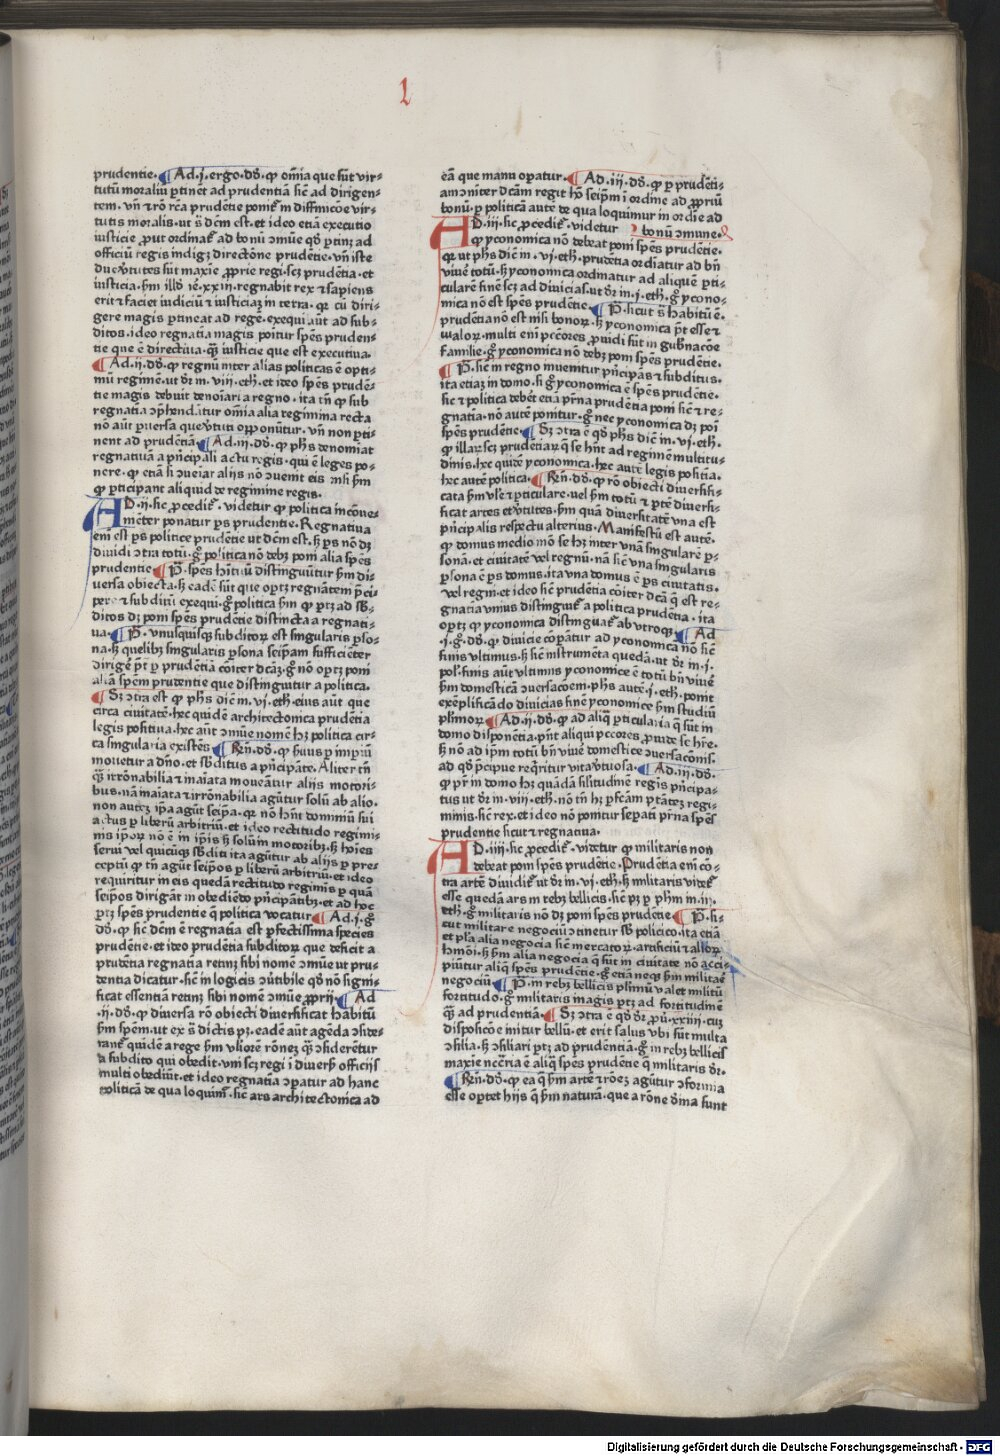 l
prudentie. Ad .i. ergo ds. qp omīa que sūt vir-
tutū moraliū ptinēt ad prudentiā sic̄ ad dirigen-
tem. vn̄ ⁊ rō rc̄a prudētie poniť ī diffinicōe vir-
tutis moralis. ut s̄ dcm̄ est. et ideo etiā executio
iusticie put ordinať ad bonū ɔmūe qd̄ ptinz ad
officiū regis indigz directōne prudētie. vn̄ iste
due v̓tutes sūt maxīe pprie regi. scz prudētia. et
iusticia. s̄m illd̓ ie. xxiii. regnabit rex ⁊ sapiens
erit ⁊ faciet iudiciū ⁊ iusticiaz in terra. qr cū diri-
gere magis ptineat ad regē. exequi aūt ad sub-
ditos. ideo regnatīa magis poitur spēs pruden-
tie que ē directiva. qz̄ iusticie que est executiva.
Ad .ii. ds. qp regnū inter alias politicas ē opti-
mū regimē. ut dr̄ in. viii. eth. et ideo spēs prudē-
tie magis debuit denoīari a regno. ita tn̄ qp sub
regnatīa ɔphendātur omīa alia regimina recta
nō aūt puersa que v̓tuti opponūtur. vn̄ non pti-
nent ad prudētiā. Ad .iii. ds. qp phs denomīat
regnatiuā a prīcipali actu regis. qui ē leges po-
nere. qp etiā si ɔueīat alijs nō ɔuenit eis nisi s̄m
qp pticipant aliquid de regimine regis.
AD .ii. sic pcediť. videtur qp politica incōue-
niēter ponatur ps prudentie. Regnatiua
enī est ps politice prudētie ut dcm̄ est. sz ps nō dz
diuidi ɔtra totū. g̊ politica nō debz poni alia spēs
prudentie. P. spēs hītuū distinguūtur s̄m di-
uersa obiecta. sz eadē sūt que optz regnātem pci-
pere ⁊ subditū exequi. g̊ politica s̄m qp ptz ad sb̄-
ditos dz poni spēs prudētie distincta a regnati-
ua. P. vnusquisqz subditoꝝ est singularis pso-
na. sz quelibz singularis psona seipam sufficiēter
dirigē pt̄ p prudētiā cōiter dc̄az. g̊ nō optz poni
aliā spēm prudentie que distinguitur a politica.
Sz ɔtra est qp phs dic̄ m. vi. eth. eius aūt que
circa ciuitatē. hec quidē architectonica prudētia
legis positiua. hec aūt ɔmūe nomē hz politica cir-
ca singularia existēs. Rn̄. ds. qp s̓uus p impiū
mouetur a dn̄o. et sb̄ditus a prīcipāte. Aliter tn̄
qz̄ irrōnabilia ⁊ inaīata moueātur alijs motori-
bus. nā inaīata ⁊ irrōnabilia agūtur solū ab alio.
non autez ipa agūt seipa. qr nō hn̄t dominiū sui
actus p liberū arbitriū. et ideo rectitudo regimi-
nis ipoꝝ nō ē in ipīs sz solū in motoribz. sz hoīes
serui vel quicūqz sb̄diti ita agūtur ab alijs p pre-
ceptū qp tn̄ agūt seipos p liberū arbitriū. et ideo
requiritur in eis quedā rectitudo regiminīs p quā
seipos dirigāt in obediēdo prīcipātibz. et ad hoc
ptz spēs prudentie q̄ politica vocatur. Ad .i. g̊
ds. qp sic̄ dcm̄ ē regnatīa est pfectissima species
prudētie. et ideo prudētia subditoꝝ que deficit a
prudētia regnatīa retinz sibi nomē ɔmūe ut pru-
dentia dicatur. sic̄ in logicis ɔūtibile qd̄ nō signi-
ficat essentiā retinz sibi nomē ɔmūe pprij. Ad
.ii. ds. qp diuersa rō obiecti diuersificat habitū
s̄m spēm. ut ex s̄ dictis pz. eadē aūt agēda ɔside-
ranť quidē a rege s̄m vliorē rōnez qz̄ ɔsiderētur
a subdito qui obedit. vni scz regi ī diuersis officijs
multi obediūt. et ideo regnatīa ɔpatur ad hanc
politicā de qua loquimur. sic̄ ars architectonica ad
eā que manu opatur. Ad .iii. ds. qp p prudēti-
am ɔniter dcām regit hō seipm̄ ī ordine ad ppriū
bonū. p politicā aūtē de qua loquimur in ordīe ad
AD .iii. sic pcediť. videtur bonū ɔmune.
qp yconomica nō debeat poni spēs prudētie.
qr ut phs dic̄ m. vi. eth. prudētia ordīatur ad bn̄
viuē totū. sz yconomica ordinatur ad aliquē pti-
culare finē scz ad diuicias. ut dr̄ in .i. eth. g̊ ycono-
mica nō est spēs prudētie. P. sicut s̄ habitū ē.
prudētia nō est nisi bonoꝝ. sz yconomica pt̄ esse ⁊
maloꝝ. multi enī pccōres puidi sūt in gubnacōe
familie. g̊ yconomica nō debz poni spēs prudētie.
P. sic̄ in regno inuenitur prīcipans ⁊ subditus.
ita etiaz in domo. si g̊ yconomica ē spēs prudētie.
sic ⁊ politica debēt etiā pr̄na prudētia poni sic̄ ⁊ re-
gnatīa. nō autē ponitur. g̊ nec yconomica dz poni
spēs prudētie. Sz ɔtra ē qd̄ phs dic̄ m. vi. eth.
qp illaꝝ scz prudētiaꝝ q̄ se hn̄t ad regimē multitu-
dinis. hec quidē yconomica. hec autē legis positīa.
hec autē politica. Rn̄. ds. qp rō obiecti diuersifi-
cata s̄m vl̓e ⁊ pticulare. vel s̄m totū ⁊ ptē diuersi-
ficat artes et v̓tutes. s̄m quā diuersitatē vna est
prīcipalis respectu alterius. Manifestū est autē.
qp domus medio mō se hz inter vnā singularē p-
sonā. et ciuitatē vel regnū. nā sic̄ vna singularis
psona ē ps domus. ita vna domus ē ps ciuitatis.
vel regni. et ideo sic̄ prudētia cōiter dc̄a q̄ est re-
gnatīa vnius distinguiť a politica prudētia. ita
optz qp yconomica distinguať ab vtroqz. Ad
.i. g̊. ds. qp diuicie ɔpātur ad yconomicā nō sic̄
finis vltimus. sz sic̄ instrumēta quedā. ut dr̄ in .i.
pol. finis aūt vltimus yconomice ē totū bn̄ viuē
s̄m domesticā ɔuersacōem. phs autē .i. eth. ponit
exēplificādo diuicias finē yconomice s̄m studiū
plīmoꝝ. Ad .ii. ds. qp ad aliq̄ pticularia q̄ sūt in
domo disponēda. pn̄t aliqui pccōres puide se hr̄e.
sz nō ad ipm̄ totū bn̄ viuē domestice ɔuersacōnis.
ad qd̄ prīcipue reqritur vita v̓tuosa. Ad .iii. ds.
qp pr̄ in domo hz quādā silitudinē regis prīcipa-
tus ut dr̄ in. viii. eth. nō tn̄ hz pfcām ptātez regi-
minis. sic̄ rex. et ideo nō ponitur sepati pr̄na spēs
prudentie sicut ⁊ regnatiua.
AD .iiii. sic pcediť. videtur qp militaris non
debeat poni spēs prudētie. Prudētia enī cō-
tra artē diuidiť ut dr̄ in. vi. eth. sz militaris videť
esse quedā ars in rebz bellicis. sic̄ pz p phm̄ in .iii.
eth. g̊ militaris nō dz poni spēs prudētie. P. si-
cut militare negociū ɔtinetur sb̄ politico. ita etiā
et pl̓a alia negocia sic̄ mercatoꝝ. artificiū ⁊ alioꝝ
hmōi. sz s̄m alia negocia q̄ sūt in ciuitate nō acci-
piūtur aliq̄ spēs prudētie. g̊ etiā neqz s̄m militare
negociū. P. in rebz bellicis plīmū valet militū
fortitudo. g̊ militaris magis ptz ad fortitudinē
qz̄ ad prudentiā. Sz ɔtra ē qd̄ dr̄ pū. xxiiii. cuz
disposicōe initur bellū. et erit salus vbi sūt multa
ɔsilia. sz ɔsiliari ptz ad prudētiā. g̊ in rebz bellicis
maxie nccr̄ia ē aliq̄ spēs prudētie q̄ militaris dr̄.
Rn̄. ds. qp ea q̄ s̄m artē ⁊ rōez agūtur ɔformia
esse oportet hijs q̄ s̄m naturā. que a rōne dīna sunt
Digitalisierung gefördert durch die Deutsche Forschungsgemeinschaft - DFG